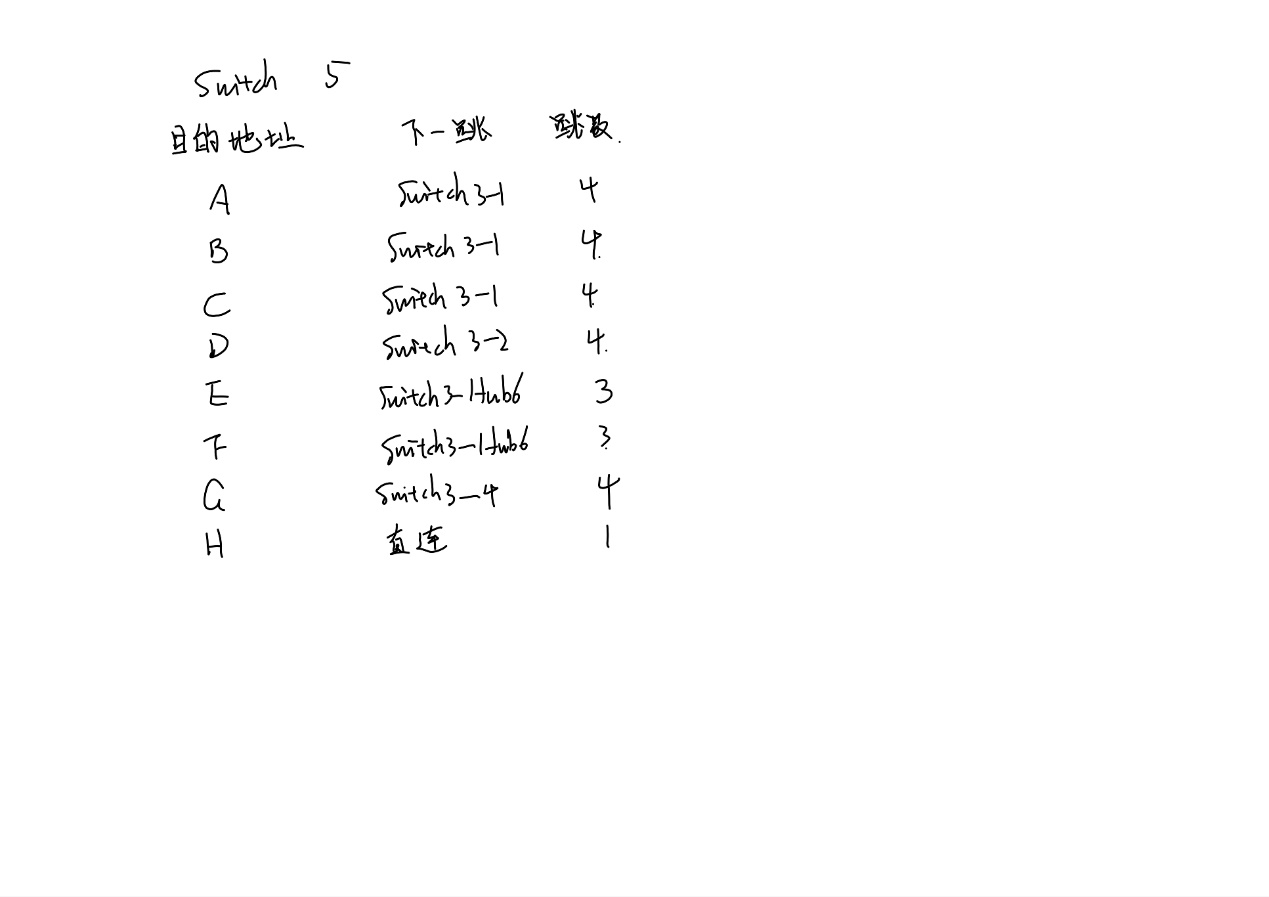 Switch 5
目的地址 下一跳 跳数.
A Switch 3-1 4
B Switch 3-1 4.
C Switch 3-1 4.
D Switch 3-2 4.
E Switch3-Hub6 3
F Switch3-Hub6 3.
G Switch3-4 4
H 直连 1